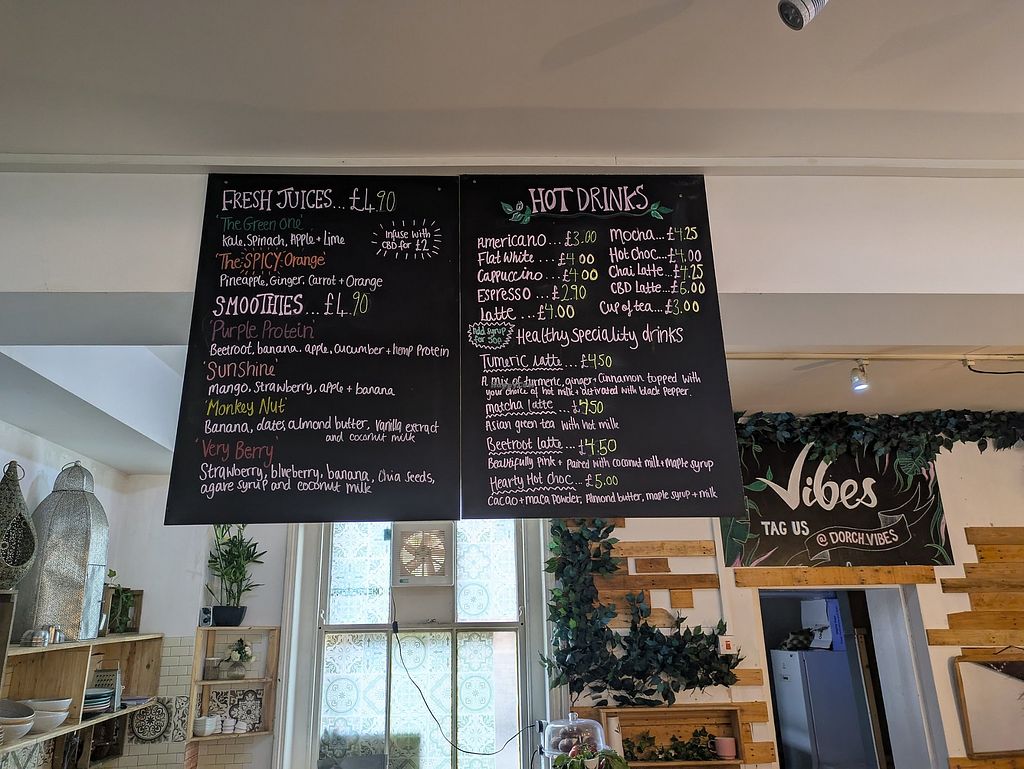 FRESH JUICES... £4.90
'The Green One'
Kale, Spinach, Apple + Lime
Infuse with
CBD for £2
'The SPICY Orange'
Pineapple, Ginger, Carrot + Orange
SMOOTHIES... £4.90
'Purple Protein'
Beetroot, banana, apple, cucumber + hemp Protein
'Sunshine'
Mango, Strawberry, apple + banana
'Monkey Nut'
Banana, dates, almond butter, vanilla extract
and coconut milk
'Very Berry'
Strawberry, blueberry, banana, Chia seeds,
agave syrup and coconut milk
HOT DRINKS
Americano... £3.00
Flat White... £4.00
Cappuccino... £4.00
Espresso... £2.90
Latte... £4.00
Mocha... £4.25
Hot Choc... £4.00
Chai Latte... £4.25
CBD Latte... £6.00
Cup of tea... £3.00
Add syrup
for 50p
Healthy Speciality drinks
Tumeric latte... £4.50
A mix of turmeric, ginger + Cinnamon topped with
your choice of hot milk + activated with black pepper.
matcha latte... £4.50
Asian green tea with hot milk
Beetroot latte... £4.50
Beautifully Pink + Paired with coconut milk + maple syrup
Hearty Hot Choc... £5.00
Cacao + maca powder, Almond butter, maple syrup + milk
Vibes
TAG US
@DORCH.VIBES